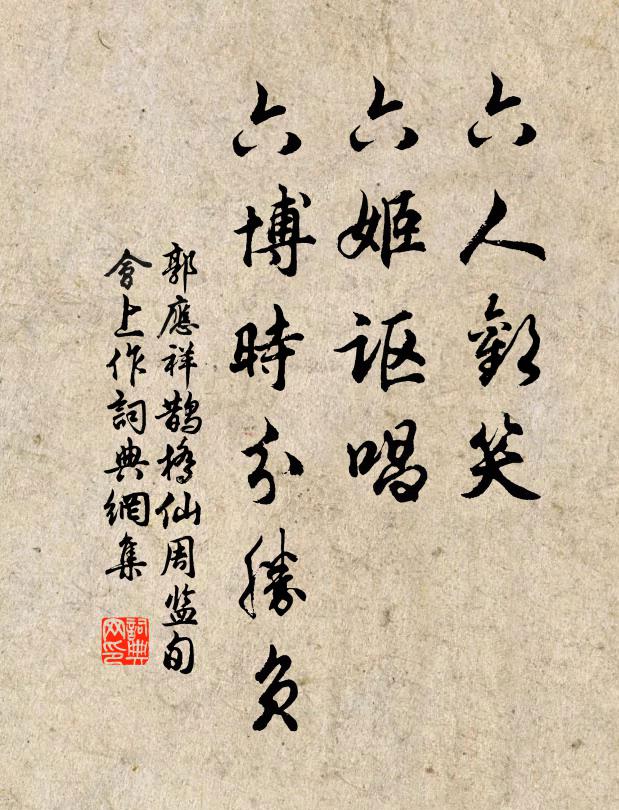 六人歡笑
六姬謳唱
六博時分勝負
郭應祥鵲橋仙周監旬
會上作詞典網集
詞典网印